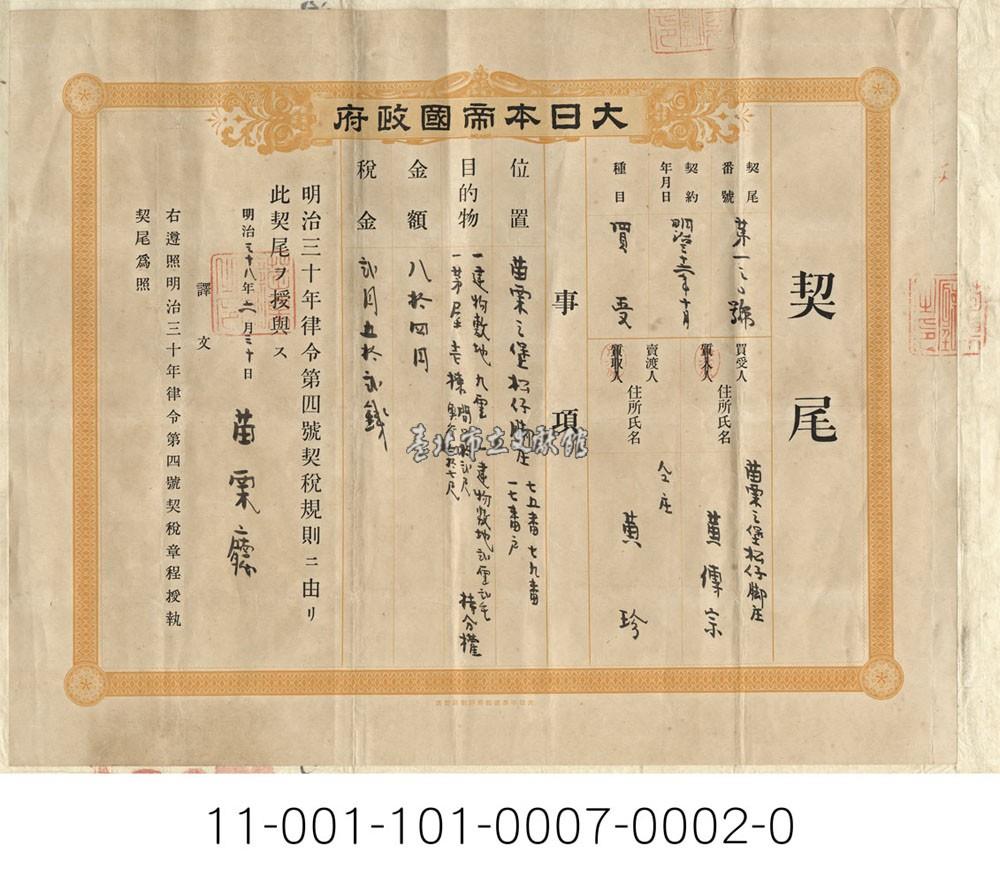 大日本帝國政府
契尾
契尾番號
第一之八號
契約年月日
明治三十年十月
種目
買受
買受人
質入人
住所氏名
苗栗三堡松仔脚庄
黃傳宗
賣渡人
質取人
住所氏名
仝庄
黃珍
事項
位置
苗栗三堡松仔脚庄 七五番 七九番
一七番戶
目的物
一建物敷地九厘 建物敷地
一茅屋壱棟 持分權
金額
八拾四円
税金
弐円五拾弐錢
明治三十年律令第四號契税規則ニ由リ
此契尾ヲ授與ス
明治三十八年二月三十日
苗栗廳
譯文
右遵照明治三十年律令第四號契税章程授執
契尾爲照
臺北市立文獻館
11-001-101-0007-0002-0